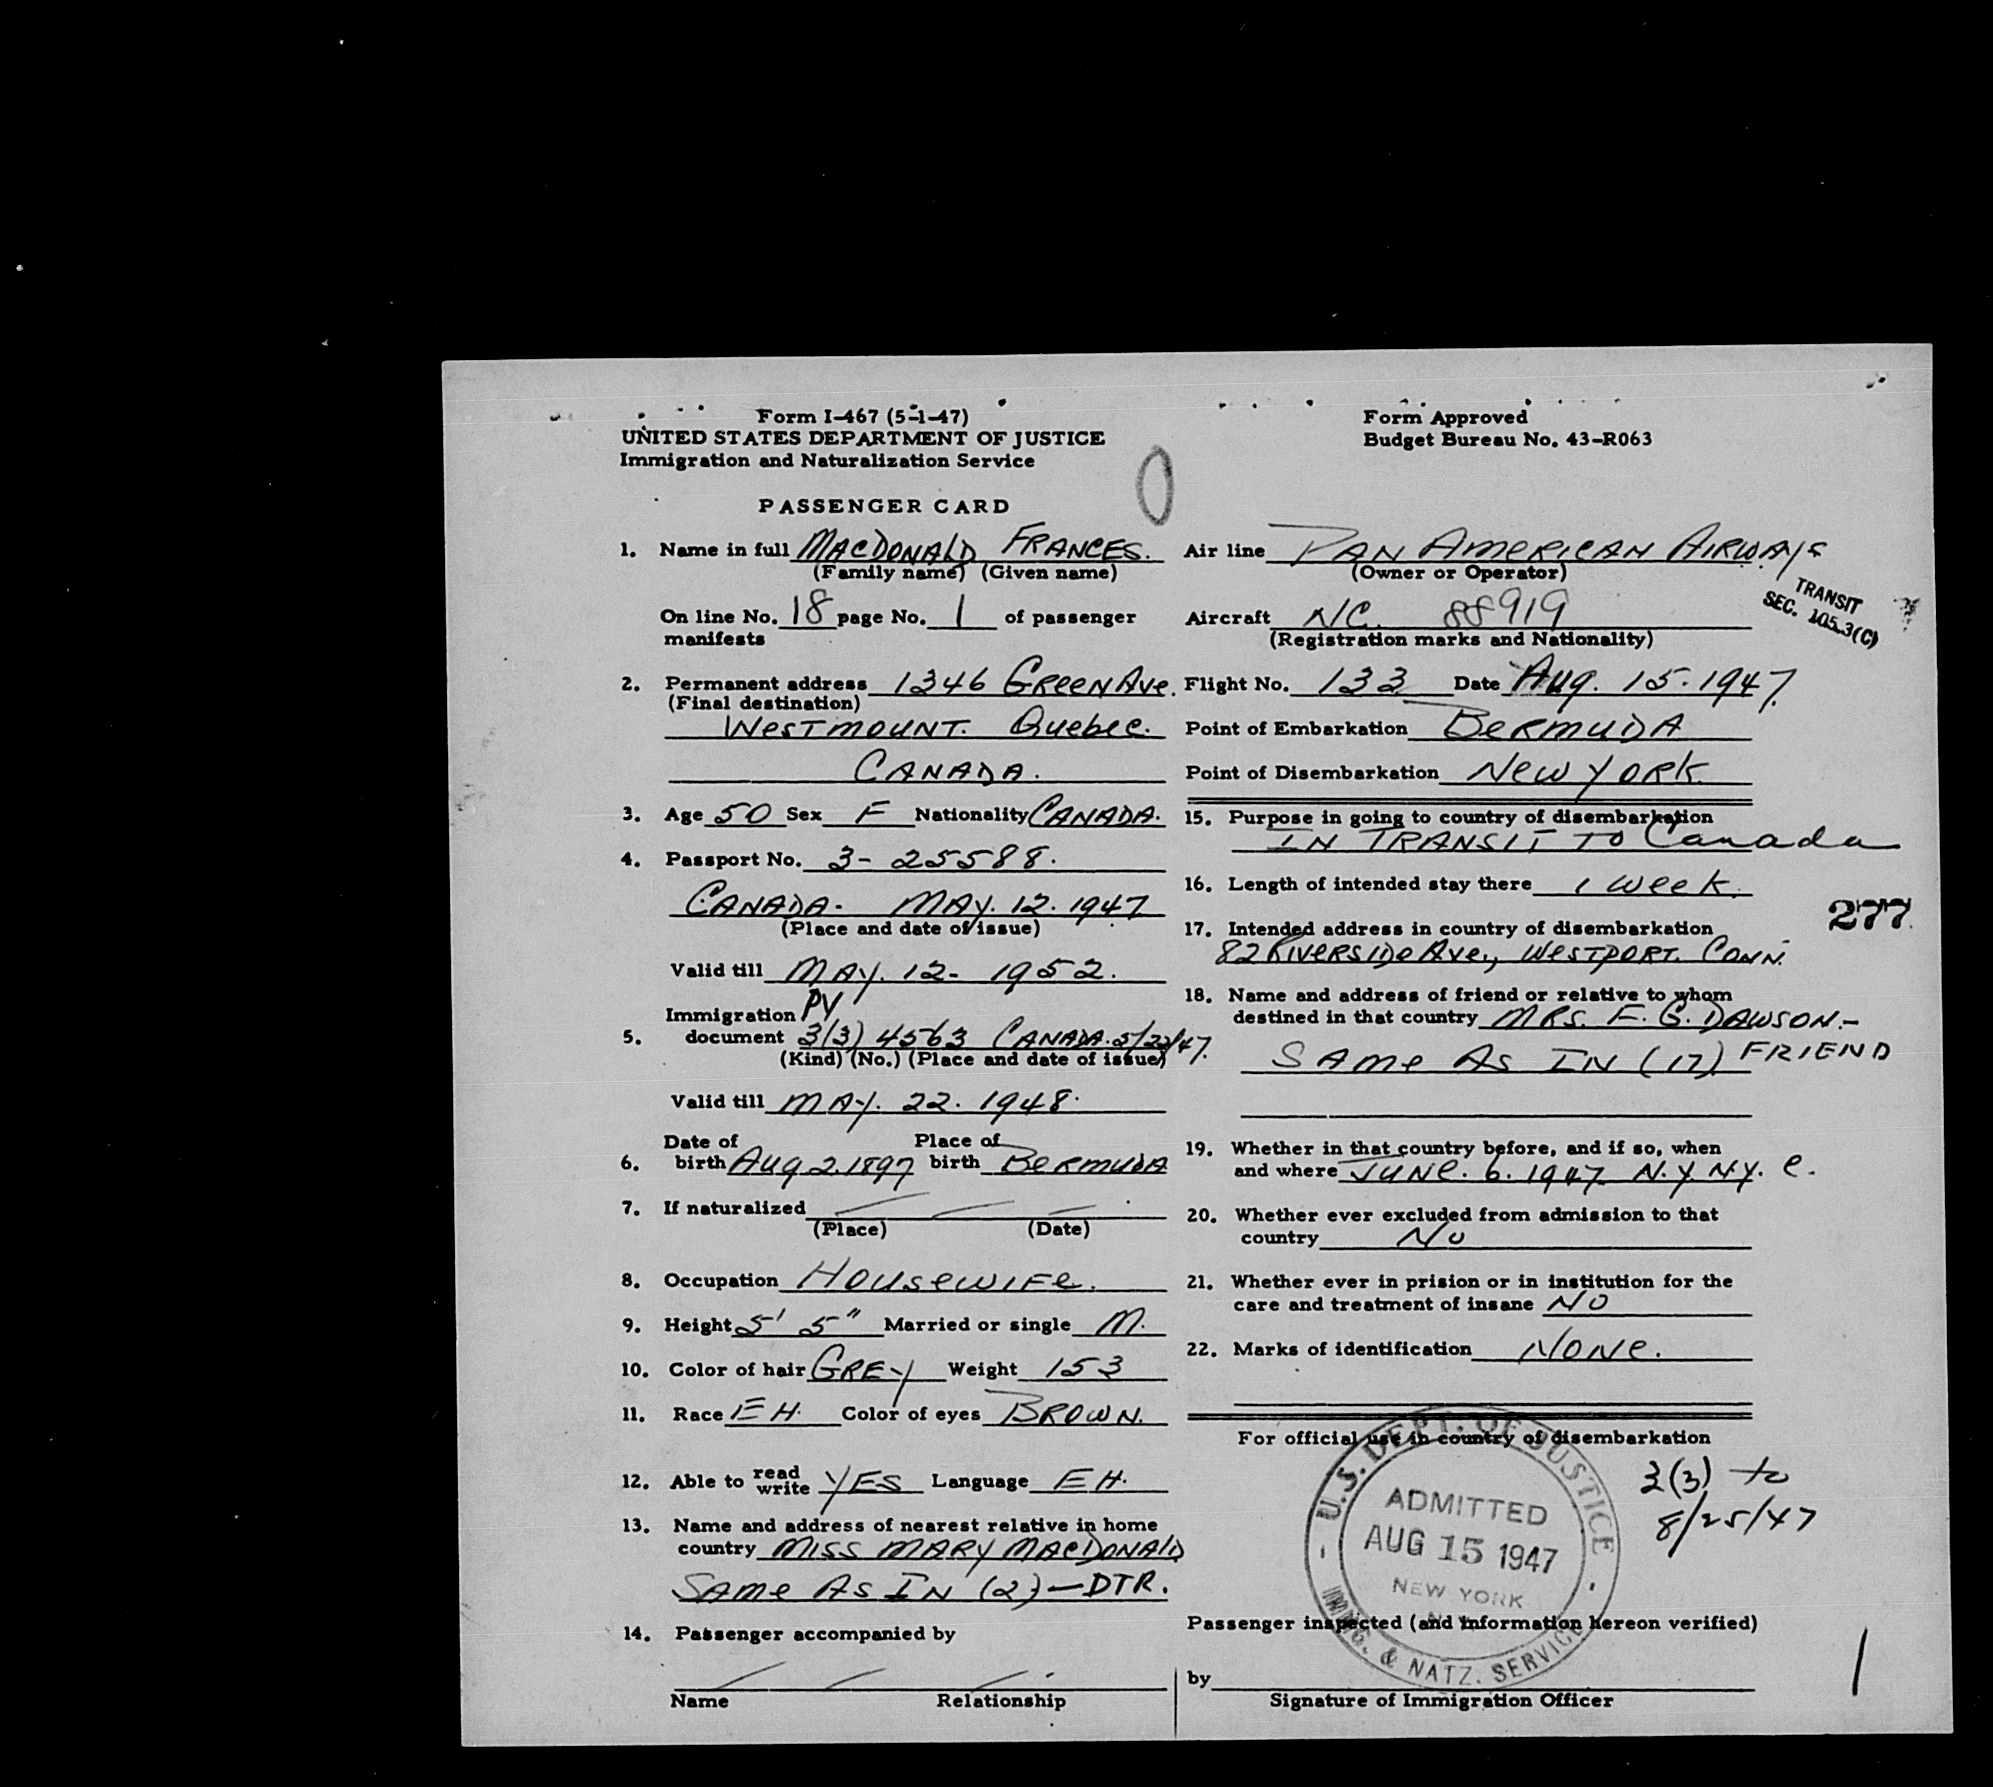 Form I-467 (5-1-47)
UNITED STATES DEPARTMENT OF JUSTICE
Immigration and Naturalization Service
PASSENGER CARD
Form Approved
Budget Bureau No. 43-R063
1. Name in full MACDONALD FRANCES.
(Family name) (Given name)
On line No. 18 page No. 1 of passenger
manifests
2. Permanent address 1346 GREEN AVE.
(Final destination)
WESTMOUNT. QUEBEC.
CANADA.
3. Age 50 Sex F Nationality CANADA.
4. Passport No. 3-25588.
CANADA. MAY. 12. 1947
(Place and date of issue)
Valid till MAY. 12- 1952.
Immigration PV
5. document 3(3) 4563 CANADA. 5/22/47.
(Kind) (No.) (Place and date of issue)
Valid till MAY. 22. 1948.
Date of Place of
6. birth AUG 2. 1897 birth BERMUDA
7. If naturalized
(Place) (Date)
8. Occupation HOUSEWIFE.
9. Height 5' 5" Married or single M.
10. Color of hair GREY Weight 153
11. Race EH. Color of eyes BROWN.
12. Able to read write YES Language EH.
13. Name and address of nearest relative in home
country MISS MARY MACDONALD
SAME AS IN (2) — DTR.
14. Passenger accompanied by
Name Relationship
Air line PAN AMERICAN AIRWAYS
(Owner or Operator)
TRANSIT
SEC. 105.3(C)
Aircraft NC. 88919
(Registration marks and Nationality)
Flight No. 133 Date Aug. 15. 1947.
Point of Embarkation BERMUDA
Point of Disembarkation NEW YORK
15. Purpose in going to country of disembarkation
IN TRANSIT TO Canada
16. Length of intended stay there 1 WEEK.
277
17. Intended address in country of disembarkation
82 RIVERSIDE AVE., WESTPORT. CONN.
18. Name and address of friend or relative to whom
destined in that country MRS. F. G. DAWSON.-
SAME AS IN (17) FRIEND
19. Whether in that country before, and if so, when
and where JUNE. 6. 1947 N.Y. N.Y. C.
20. Whether ever excluded from admission to that
country NO
21. Whether ever in prision or in institution for the
care and treatment of insane NO
22. Marks of identification NONE.
For official use in country of disembarkation
U.S. DEPT. OF JUSTICE
ADMITTED
AUG 15 1947
NEW YORK
N.Y.
IMMIG. & NATZ. SERVICE
3(3) to
8/25/47
Passenger inspected (and information hereon verified)
by
Signature of Immigration Officer
1